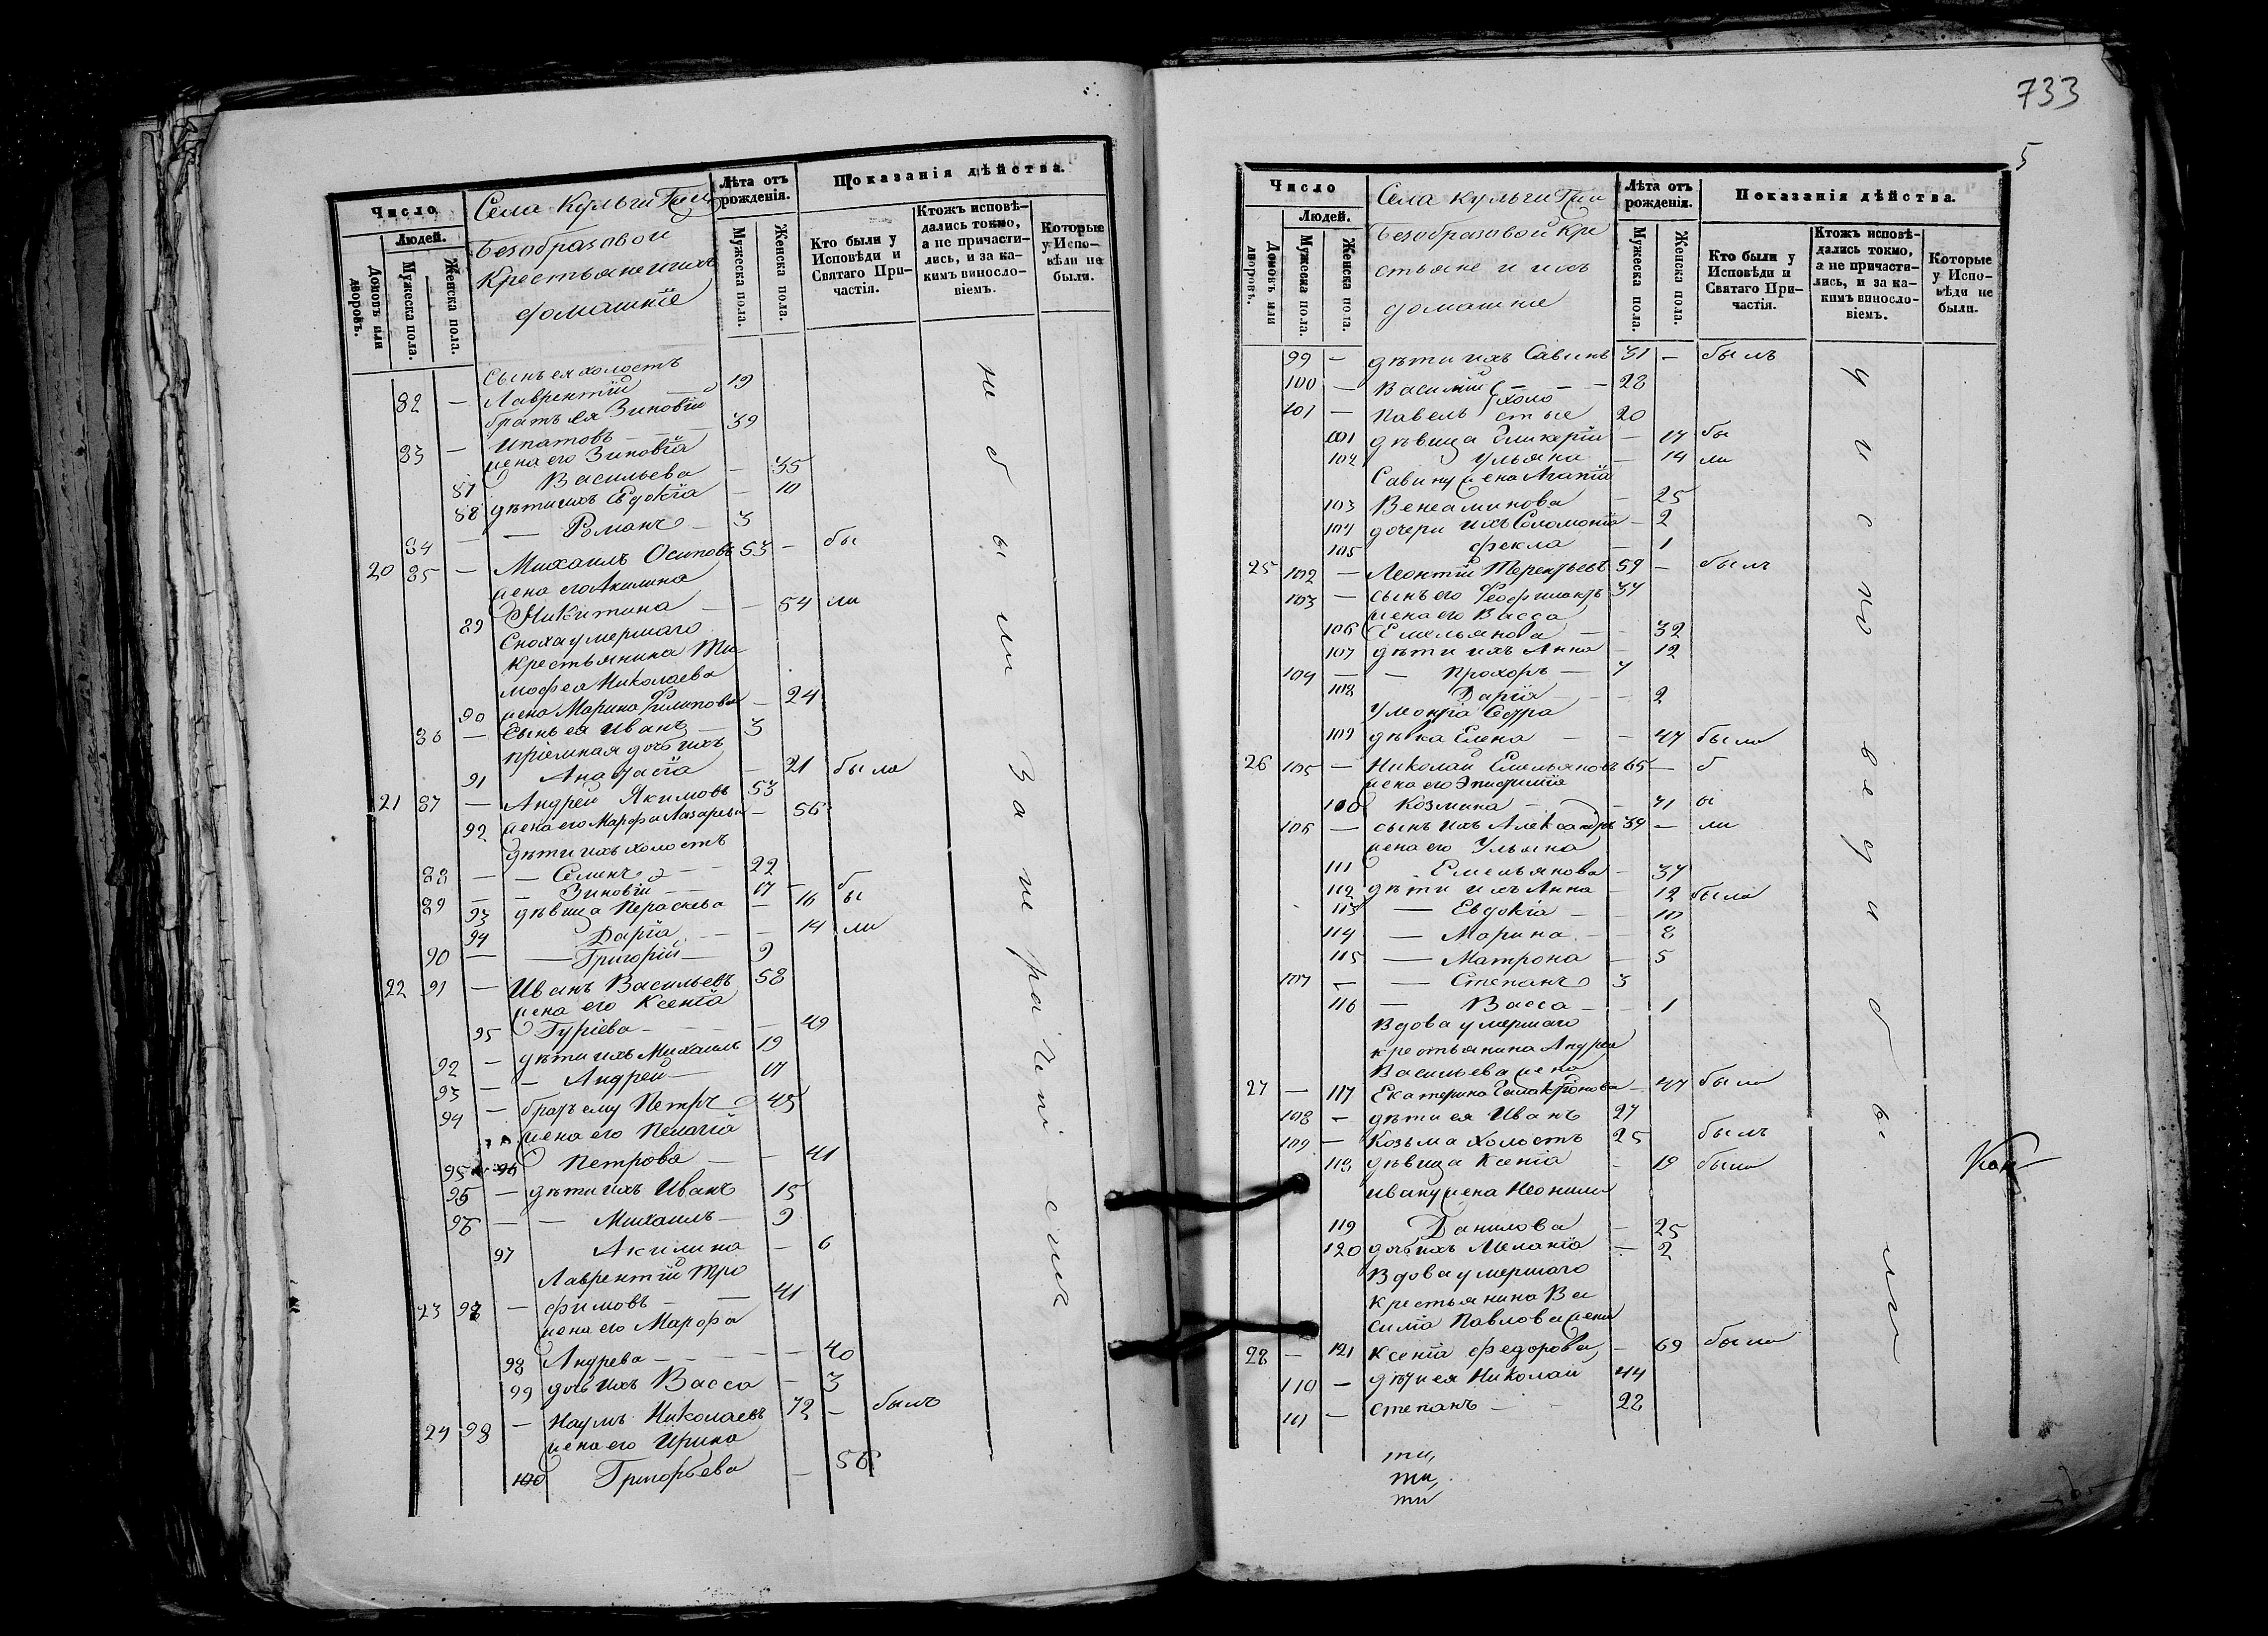 Число
Людей.
Домовъ или дворовъ.
Мужеска пола.
Женска пола.
Села Кульчи Гжи
Безобразовой
Крестьяне и ихъ
домашніе
Лѣта отъ рожденія.
Мужеска пола.
Женска пола.
Показанія дѣйства.
Кто были у Исповѣди и Святаго Причастія.
Ктожъ исповѣдались токмо, а не причастились, и за какимъ винословіемъ.
Которые у Исповѣди не были.
Сынъ ея холостъ
82 — Лаврентій — 19
братъ ея Зиновій
83 — Ипатовъ — 39
жена его Зиновія
87 Васильева — 35
88 дѣти ихъ Евдокія — 10
84 — — Романъ — 3
20 85 — Михаилъ Осиповъ 53 — бы
жена его Акилина
89 Никитина — — 54 ли
Сноха умершаго
крестьянина Ти-
мофея Николаева
90 жена Марина Филипова — 24
86 — Сынъ ея Иванъ — 3
пріемная дочь ихъ
91 Анастасія — 21 была
21 87 — Андрей Якимовъ 53
92 жена его Марфа Лазарева — 56
дѣти ихъ холостъ
88 — — Семенъ — 22
89 — — Зиновій — 17 — б
93 дѣвица Параскева — 16 бы
94 Дарія — — 14 ли
90 — — Григорій — 9
22 91 — Иванъ Васильевъ 58
жена его Ксенія
95 Гуріева — — 49
92 — дѣти ихъ Михаилъ 19
93 — — Андрей — 17
94 — братъ ему Петръ 45
жена его Пелагія
95 96 Петрова — — 41
95 — дѣти ихъ Иванъ 15
96 — — Михаилъ — 9
97 Акилина — 6
Лаврентій Тро
23 97 — фимовъ — — 41
жена его Марфа
98 Андрева — — — 40
99 дочь ихъ Васса — 3
24 98 — Наумъ Николаевъ 72 — былъ
жена его Ирина
100 Григорьева — 56
не были за нераченіемъ
733
5
Число
Людей.
Домовъ или дворовъ.
Мужеска пола.
Женска пола.
Села Кульчи Гжи
Безобразовой Кре
стьяне и ихъ
домашніе
Лѣта отъ рожденія.
Мужеска пола.
Женска пола.
Показанія дѣйства.
Кто были у Исповѣди и Святаго Причастія.
Ктожъ исповѣдались токмо, а не причастились, и за какимъ винословіемъ.
Которые у Исповѣди не были.
99 — дѣти ихъ Савинъ 31 — былъ
100 — Василій — — 28
холо
101 — Павелъ стые 20
101 дѣвица Гликерія — 17 бы
102 Ульяна — 14 ли
Савину жена Агапія
103 Веніаминова — 25
104 дочери ихъ Соломонія — 2
105 Фекла — 1
25 102 — Леонтій Терентьевъ 59 — былъ
103 — сынъ его Феофилактъ 34
жена его Васса
106 Емельянова — — 32
107 дѣти ихъ Анна — 12
104 — — Прохоръ — 7
108 Дарія — — 2
У Леонтія Сестра
109 дѣвка Елена — — 47 была
26 105 — Николай Емельяновъ 65 — б
жена его Епифанія
110 Козмина — — 71 ы
106 — сынъ ихъ Александръ 39 — ли
жена его Ульяна
111 Емельянова — 37
112 дѣти ихъ Анна — 12 была
113 — Евдокія — — 10
114 — Марина — — 8
115 — Матрона — 5
107 — — Степанъ 3
116 — Васса — — 1
Вдова умершаго
крестьянина Андрея
Васильева жена
27 — 117 Екатерина Галактіонова — 47 была
108 — дѣти ея Иванъ 27
109 — Козьма холостъ 25 былъ
118 дѣвица Ксенія — 19 была
Ивану жена Неонила
119 Данилова — 25
120 дочь ихъ Меланія — 2
Вдова умершаго
крестьянина Ва
силія Павлова жена
28 — 121 Ксенія Федорова — 69 была
110 — дѣти ея Николай 44
111 — Степанъ — — 22
у исповеди были
ти,
ти,
ти